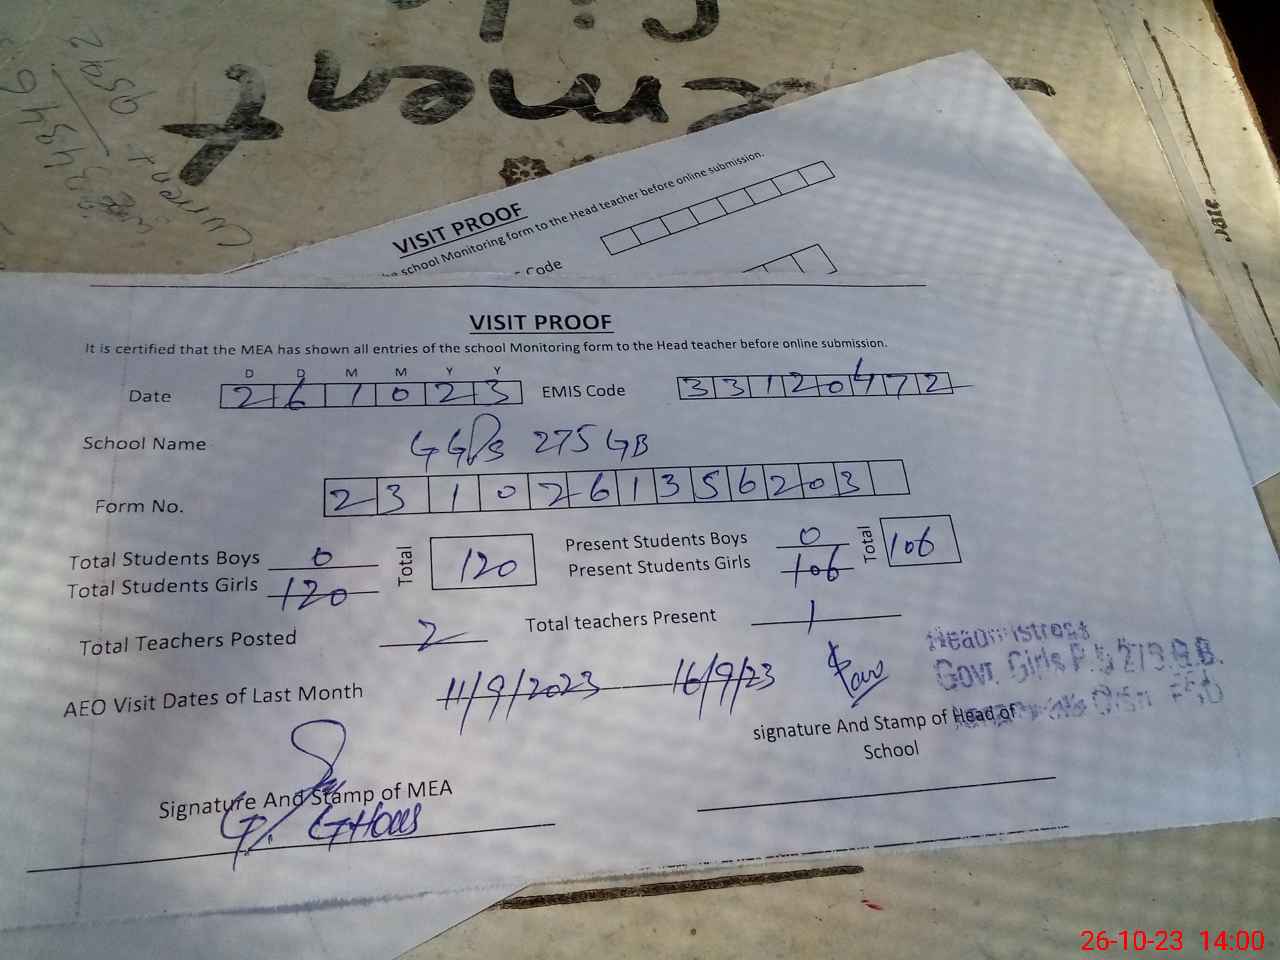 VISIT PROOF
school Monitoring form to the Head teacher before online submission.
Code
VISIT PROOF
It is certified that the MEA has shown all entries of the school Monitoring form to the Head teacher before online submission.
D D M M Y Y
Date 2 6 1 0 2 3 EMIS Code 3 3 1 2 0 4 7 2
School Name GGPS 275 GB
Form No. 2 3 1 0 2 6 1 3 5 6 2 0 3
Total Students Boys 0 Total 120 Present Students Boys 0 Total 106
Total Students Girls 120 Present Students Girls 106
Total Teachers Posted 2 Total teachers Present 1
AEO Visit Dates of Last Month 11/9/2023 16/9/23
Headmistress
Govt. Girls P.S 275 G.B.
signature And Stamp of Head of
School
Signature And Stamp of MEA
26-10-23 14:00